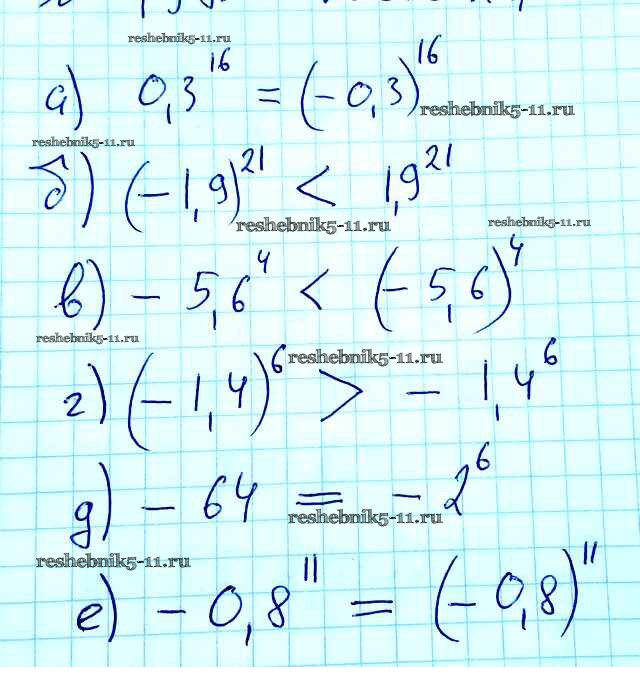 reshebnik5-11.ru
а) 0,3^16 = (-0,3)^16
reshebnik5-11.ru
reshebnik5-11.ru
б) (-1,9)^21 < 1,9^21
reshebnik5-11.ru
reshebnik5-11.ru
в) -5,6^4 < (-5,6)^4
reshebnik5-11.ru
reshebnik5-11.ru
г) (-1,4)^6 > -1,4^6
д) -64 = -2^6
reshebnik5-11.ru
reshebnik5-11.ru
е) -0,8^11 = (-0,8)^11